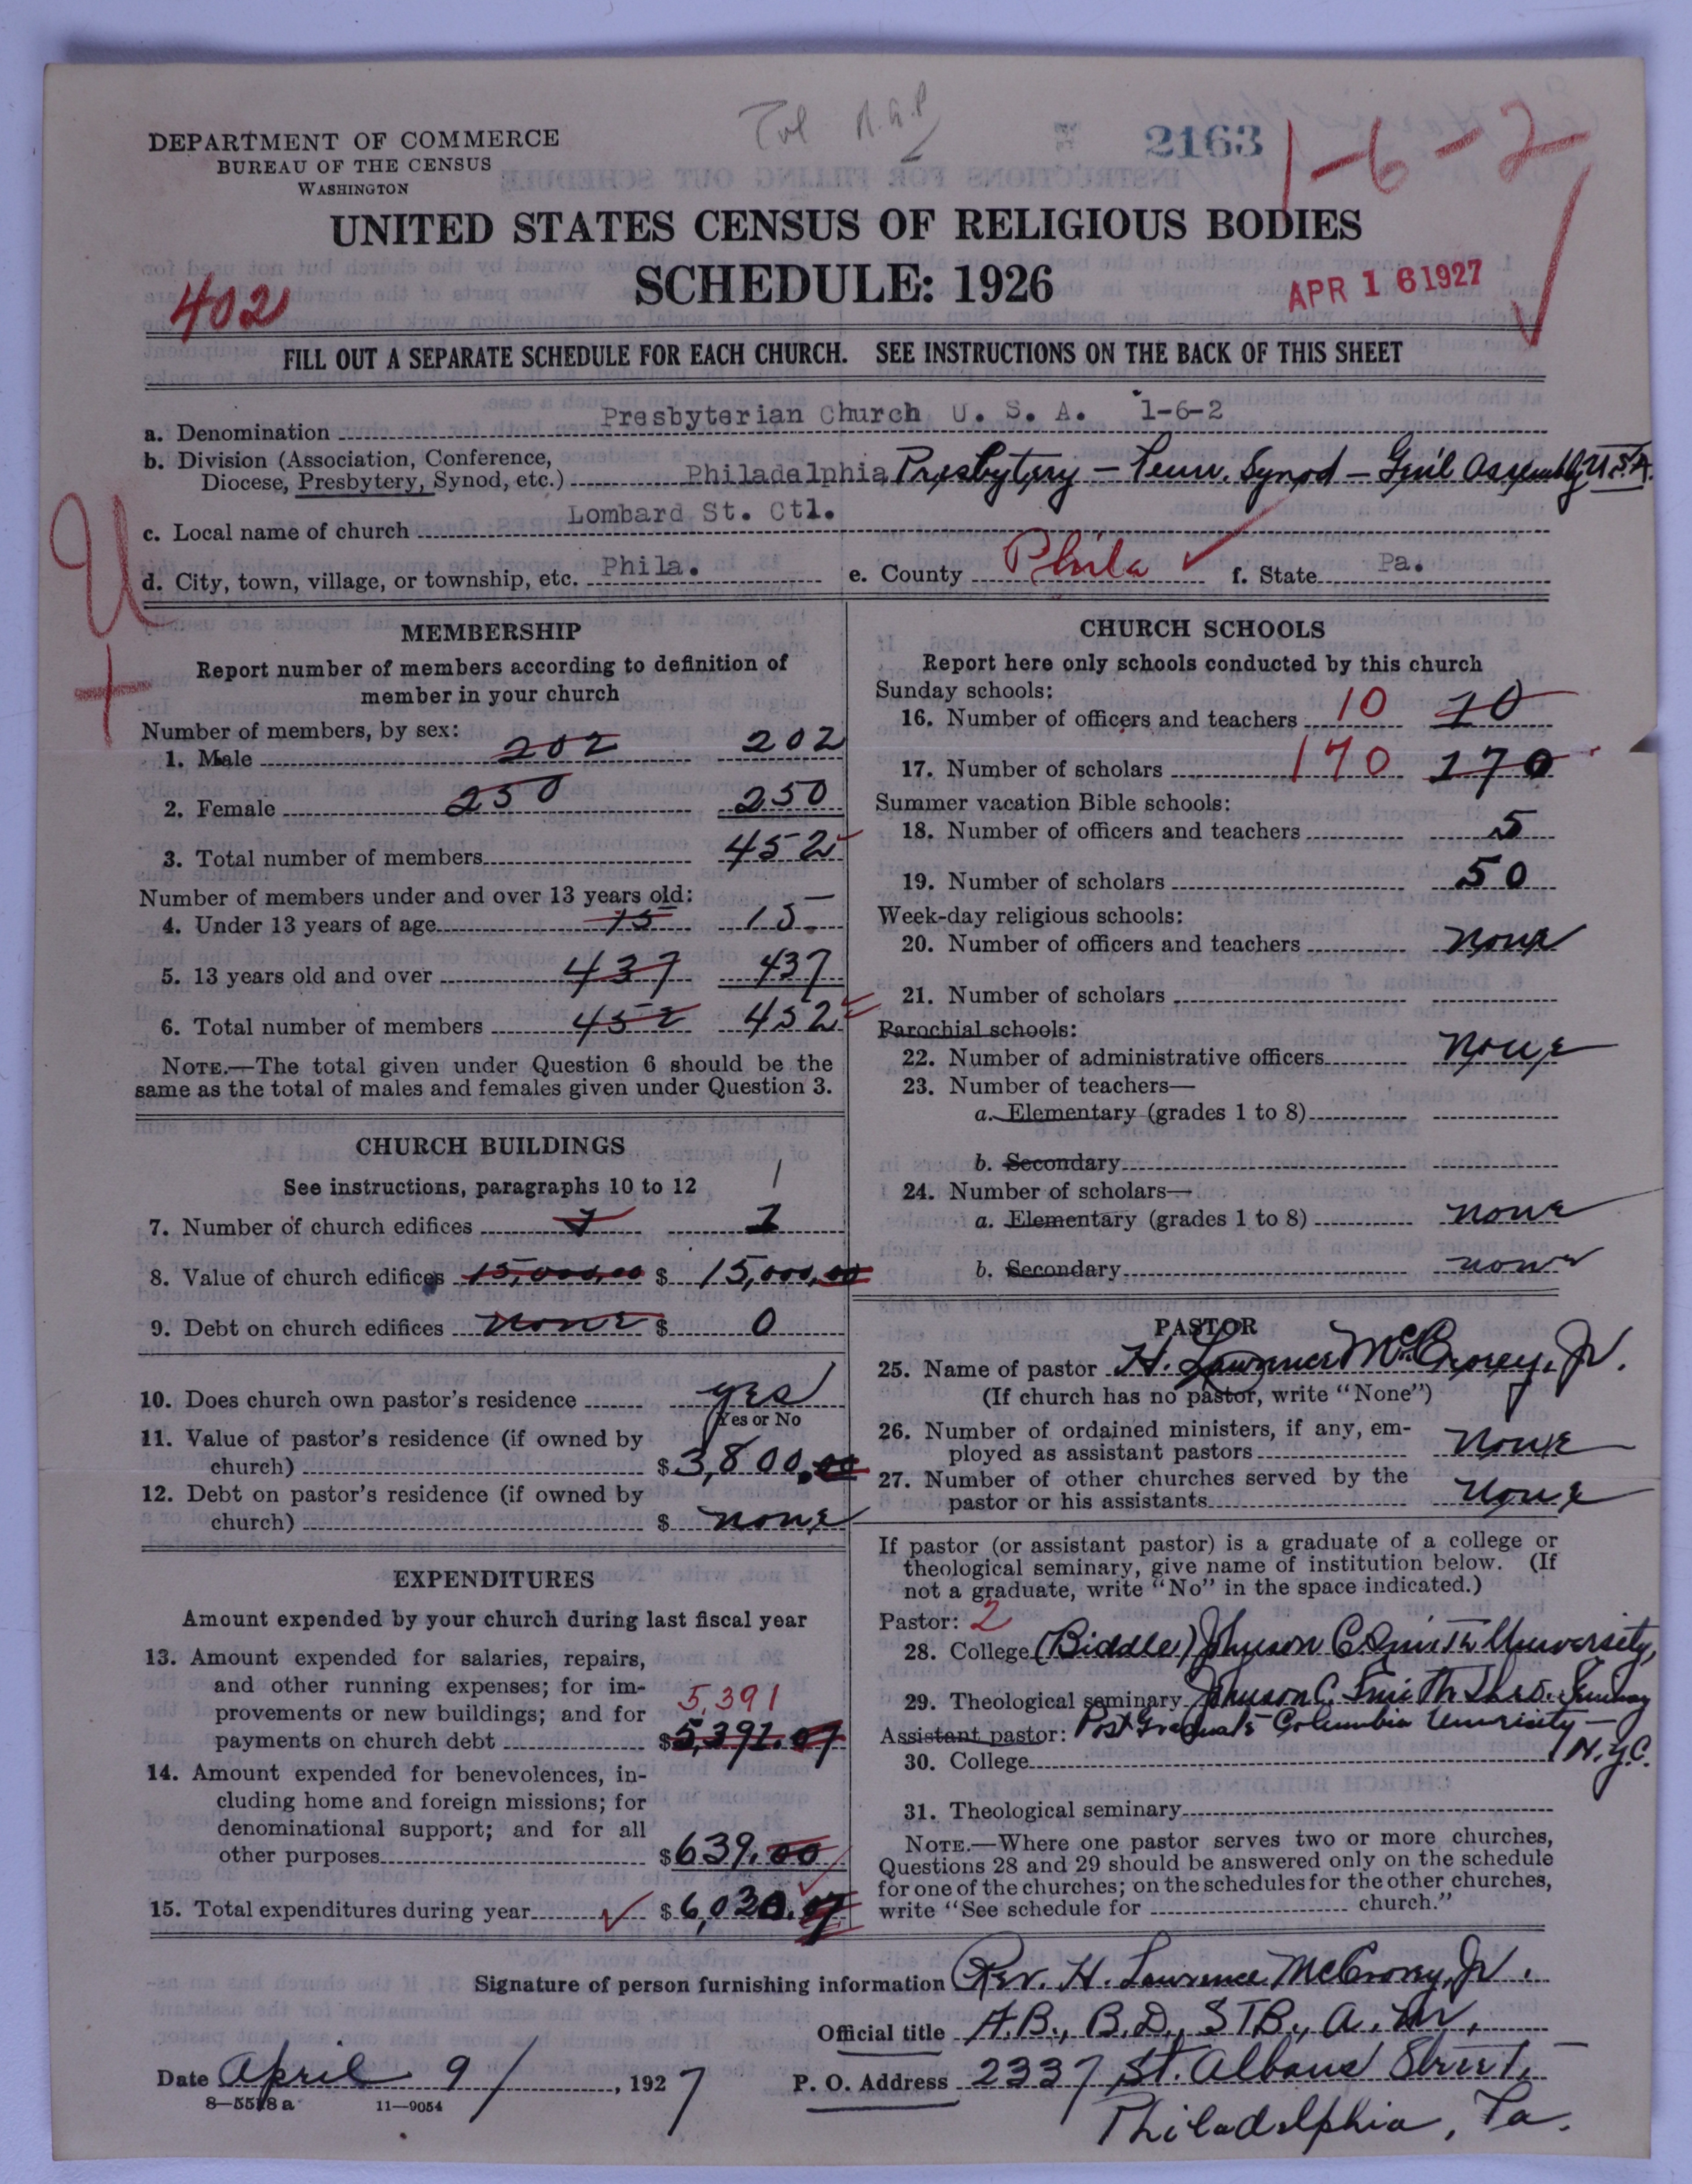 Tol R.G.P
2163
1-6-2
DEPARTMENT OF COMMERCE
BUREAU OF THE CENSUS
WASHINGTON
UNITED STATES CENSUS OF RELIGIOUS BODIES
SCHEDULE: 1926
402
APR 16 1927
FILL OUT A SEPARATE SCHEDULE FOR EACH CHURCH. SEE INSTRUCTIONS ON THE BACK OF THIS SHEET
a. Denomination Presbyterian Church U. S. A. 1-6-2
b. Division (Association, Conference,
Diocese, Presbytery, Synod, etc.) Philadelphia Presbytery — Penn. Synod — Gen'l Assembly U.S.A.
c. Local name of church Lombard St. Ctl.
d. City, town, village, or township, etc. Phila. e. County Phila f. State Pa.
U
+
MEMBERSHIP
Report number of members according to definition of
member in your church
Number of members, by sex:
1. Male 202 202
2. Female 250 250
3. Total number of members 452
Number of members under and over 13 years old:
4. Under 13 years of age 15 15.
5. 13 years old and over 437 437
6. Total number of members 452 452
NOTE.—The total given under Question 6 should be the
same as the total of males and females given under Question 3.
CHURCH BUILDINGS
See instructions, paragraphs 10 to 12 1
7. Number of church edifices 1 1
8. Value of church edifices 15,000.00 $ 15,000.00
9. Debt on church edifices none $ 0
10. Does church own pastor's residence yes
(Yes or No
11. Value of pastor's residence (if owned by
church) $ 3,800.00
12. Debt on pastor's residence (if owned by
church) $ none
EXPENDITURES
Amount expended by your church during last fiscal year
13. Amount expended for salaries, repairs,
and other running expenses; for im-
provements or new buildings; and for 5,391
payments on church debt $ 5,391.07
14. Amount expended for benevolences, in-
cluding home and foreign missions; for
denominational support; and for all
other purposes $ 639.00
15. Total expenditures during year $ 6,030.07
CHURCH SCHOOLS
Report here only schools conducted by this church
Sunday schools:
16. Number of officers and teachers 10 10
17. Number of scholars 170 170
Summer vacation Bible schools:
18. Number of officers and teachers 5
19. Number of scholars 50
Week-day religious schools:
20. Number of officers and teachers none
21. Number of scholars
Parochial schools:
22. Number of administrative officers none
23. Number of teachers—
a. Elementary (grades 1 to 8)
b. Secondary
24. Number of scholars—
a. Elementary (grades 1 to 8) none
b. Secondary none
PASTOR
25. Name of pastor H. Lawrence McCrorey, Jr.
(If church has no pastor, write "None")
26. Number of ordained ministers, if any, em-
ployed as assistant pastors none
27. Number of other churches served by the
pastor or his assistants none
If pastor (or assistant pastor) is a graduate of a college or
theological seminary, give name of institution below. (If
not a graduate, write "No" in the space indicated.)
Pastor: 2
28. College (Biddle) Johnson C. Smith University,
29. Theological seminary Johnson C. Smith Theo. Seminary
Assistant pastor: Post Graduate Columbia University —
30. College N.Y.C.
31. Theological seminary
NOTE.—Where one pastor serves two or more churches,
Questions 28 and 29 should be answered only on the schedule
for one of the churches; on the schedules for the other churches,
write "See schedule for church."
Signature of person furnishing information Rev. H. Lawrence McCrorey, Jr.
Official title A.B., B.D., STB., A.M.
Date April 9/, 1927 P. O. Address 2337 St. Albans Street
8—5518a 11—9054
Philadelphia, Pa.